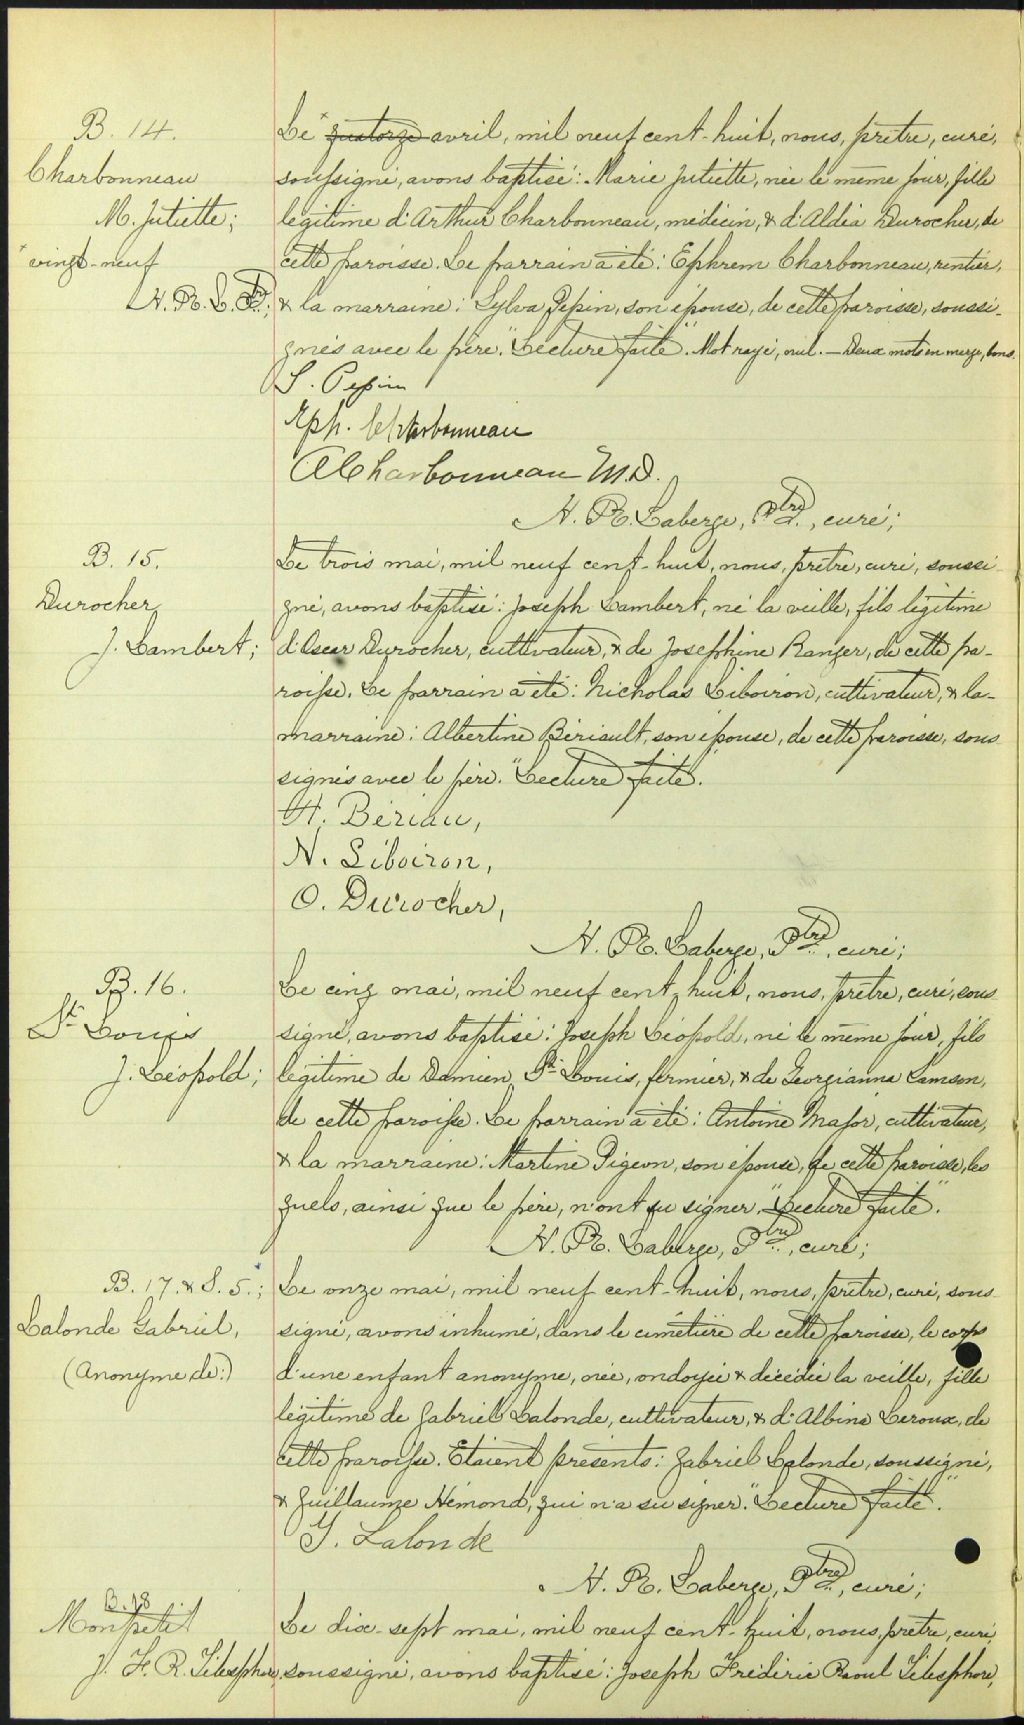 B. 14.
Charbonneau
M. Juliette;
* vingt-neuf
H. R. L. Ptre;
Le * quatorze avril, mil neuf cent-huit, nous, prêtre, curé,
soussigné, avons baptisé: Marie Juliette, née le même jour, fille
légitime d'Arthur Charbonneau, médecin, & d'Aldéa Durocher, de
cette paroisse. Le parrain a été: Ephrem Charbonneau, rentier,
& la marraine: Sylva Pepin, son épouse, de cette paroisse, soussi-
gnés avec le père. "Lecture faite". Mot rayé, nul. — Deux mots en marge, bons.
S. Pepin
Eph. Charbonneau
A Charbonneau M.D.
H. R. Laberge, Ptre, curé;
B. 15.
Durocher
J. Lambert;
Le trois mai, mil neuf cent-huit, nous, prêtre, curé, soussi-
gné, avons baptisé: Joseph Lambert, né la veille, fils légitime
d'Oscar Durocher, cultivateur, & de Josephine Ranger, de cette pa-
roisse. Le parrain a été: Nicholas Liboiron, cultivateur, & la
marraine: Albertine Bériault, son épouse, de cette paroisse, sous-
signés avec le père. "Lecture faite".
A. Bériau,
N. Liboiron,
O. Durocher,
H. R. Laberge, Ptre, curé;
B. 16.
St Louis
J. Léopold;
Le cinq mai, mil neuf cent-huit, nous, prêtre, curé, sous-
signé, avons baptisé: Joseph Léopold, né le même jour, fils
légitime de Damien St Louis, fermier, & de Georgianna Samson,
de cette paroisse. Le parrain a été: Antoine Major, cultivateur,
& la marraine: Martine Pigeon, son épouse, de cette paroisse, les
quels, ainsi que le père, n'ont su signer. "Lecture faite".
H. R. Laberge, Ptre, curé;
B. 17. & S. 5.;
Lalonde Gabriel,
(Anonyme de:)
Le onze mai, mil neuf cent-huit, nous, prêtre, curé, sous-
signé, avons inhumé, dans le cimetière de cette paroisse, le corps
d'une enfant anonyme, née, ondoyée & décédée la veille, fille
légitime de Gabriel Lalonde, cultivateur, & d'Albina Leroux, de
cette paroisse. Etaient présents: Gabriel Lalonde, soussigné,
& Guillaume Hémond, qui n'a su signer. "Lecture faite".
G. Lalonde
H. R. Laberge, Ptre, curé;
B. 18
Monpetit
J. F. R. Télesphore,
Le dix-sept mai, mil neuf cent-huit, nous, prêtre, curé,
soussigné, avons baptisé: Joseph Frédéric Raoul Télesphore,